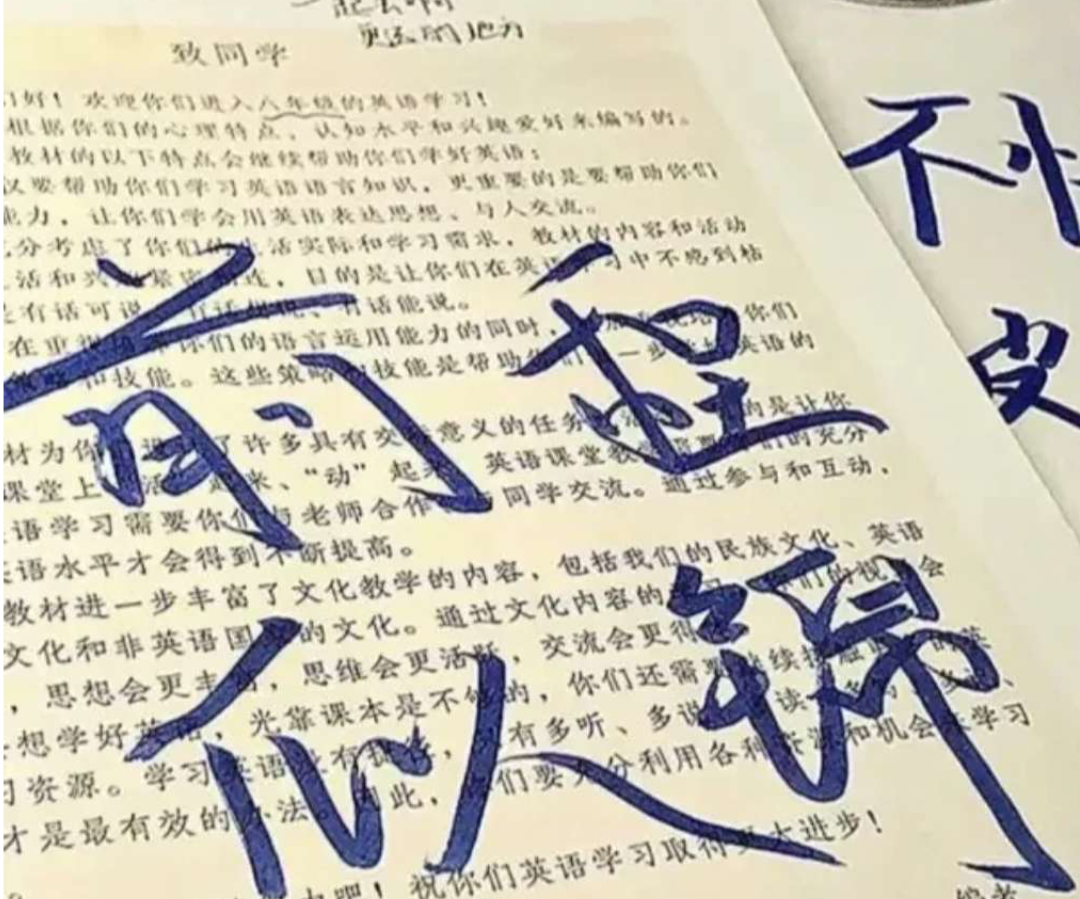 一起去啊
更远的地方
致同学
们好！欢迎你们进入八年级的英语学习！
根据你们的心理特点、认知水平和兴趣爱好来编写的。
教材的以下特点会继续帮助你们学好英语：
仅要帮助你们学习英语语言知识，更重要的是要帮助你们
能力，让你们学会用英语表达思想、与人交流。
充分考虑了你们的生活实际和学习需求，教材的内容和活动
生活和兴趣紧密相连，目的是让你们在英语学习中不感到枯
是有话可说、有话想说、有话能说。
在重视培养你们的语言运用能力的同时，你们
和技能。这些策略和技能是帮助你们进一步学好英语的
材为你们设计了许多具有交际意义的任务的是让你
课堂上“活”起来、“动”起来。英语课堂教学需要你们的充分
语学习需要你们与老师合作、与同学交流。通过参与和互动，
英语水平才会得到不断提高。
教材进一步丰富了文化教学的内容，包括我们的民族文化、英语
文化和非英语国家的文化。通过文化内容的学习，你们的视野会
，思想会更丰富，思维会更活跃，交流会更得
想学好英语，光靠课本是不够的，你们还需要继续接触英
习资源。学习英语没有捷径，只有多听、多说、多读、多写
才是最有效的办法。因此，你们要充分利用各种资源和机会来学习
力吧！祝你们英语学习取得更大进步！
编者
前程
似锦
不